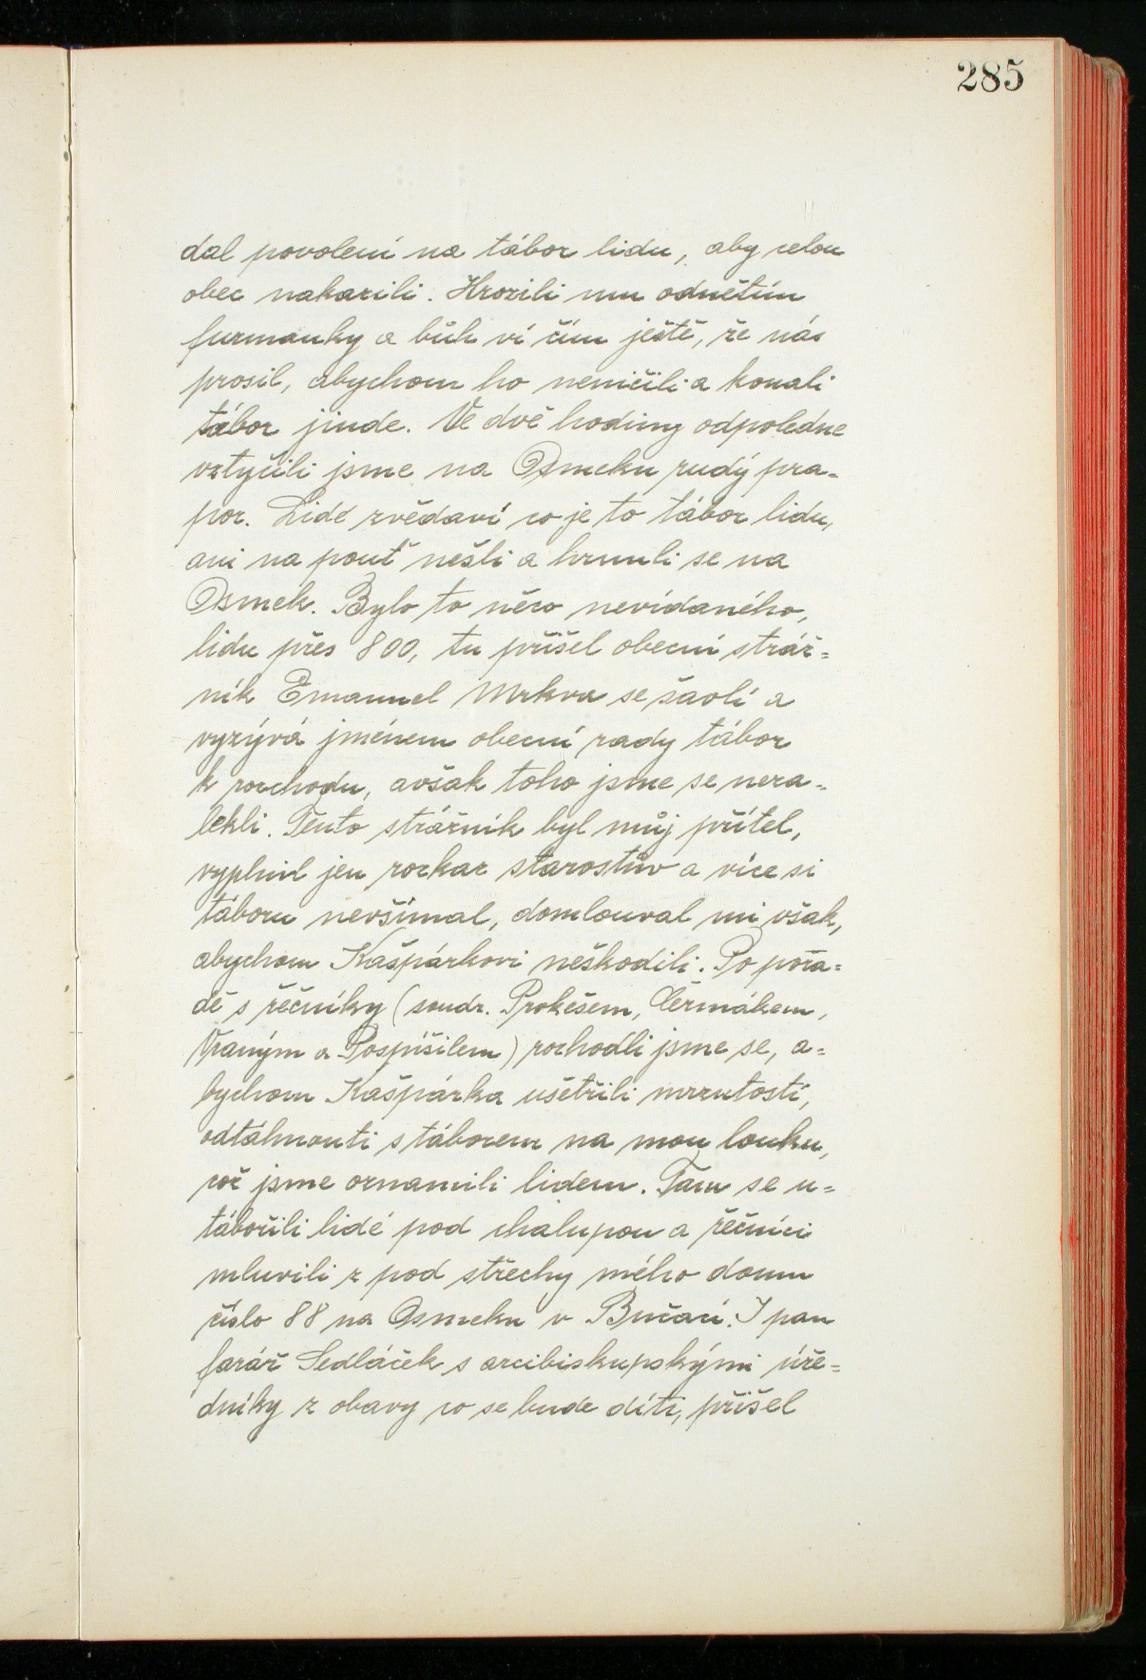 285
dal povolení na tábor lidu, aby celou
obec nakazili. Hrozili mu odnětím
furmanky a bůh ví čím ještě, že nás
prosil, abychom ho neničili a konali
tábor jinde. Ve dvě hodiny odpoledne
vztyčili jsme na Osmeku rudý pra-
por. Lidé zvědaví co je to tábor lidu,
ani na pouť nešli a hrnuli se na
Osmek. Bylo to něco nevídaného,
lidu přes 800, tu přišel obecní stráž=
ník Emanuel Mrkva se šavlí a
vyzývá jménem obecní rady tábor
k rozchodu, avšak toho jsme se neza-
lekli. Tento strážník byl můj přítel,
vyplnil jen rozkaz starostův a více si
táboru nevšímal, domlouval mi však,
abychom Kašpárkovi neškodili. Po pora=
dě s řečníky (soudr. Prokešem, Čermákem,
Vraným a Pospíšilem) rozhodli jsme se, a=
bychom Kašpárka ušetřili mrzutostí,
odtáhnouti s táborem na mou louku,
což jsme oznámili lidem. Tam se u=
tábořili lidé pod chalupou a řečníci
mluvili z pod střechy mého domu
číslo 88 na Osmeku v Bučací. I pan
farář Sedláček s arcibiskupskými úře=
dníky z obavy co se bude díti, přišel